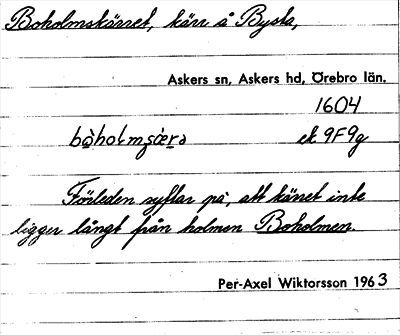 Boholmskärret, kärr å Bysta,
Askers sn, Askers hd, Örebro län.
1604
bòholmsǽra ek 9F9g
Förleden syftar på, att kärret inte
ligger långt från holmen Boholmen.
Per-Axel Wiktorsson 1963